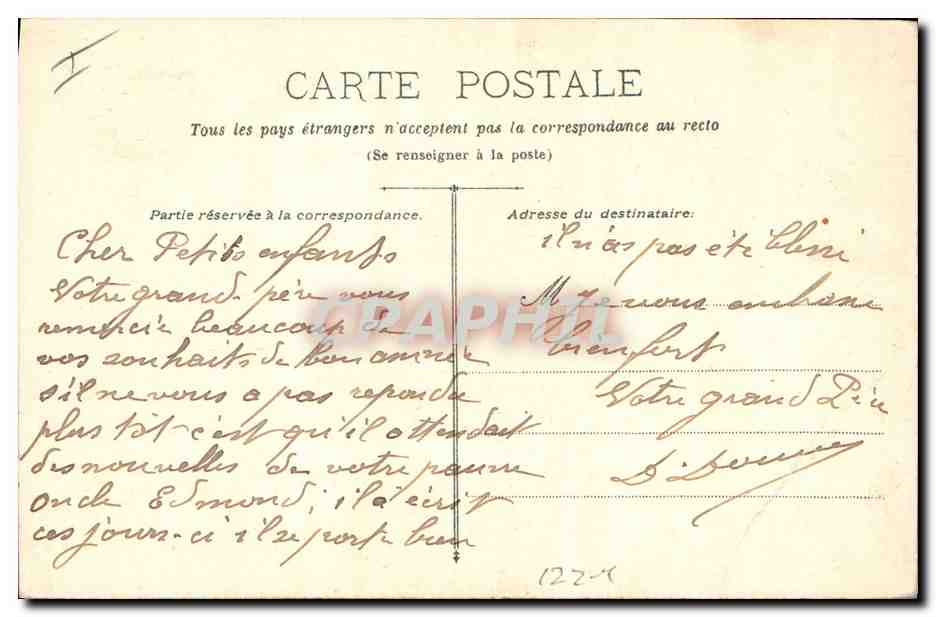 CARTE POSTALE
Tous les pays étrangers n'acceptent pas la correspondance au recto
(Se renseigner à la poste)
Partie réservée à la correspondance.
Cher Petits enfants
Votre grand-père vous
remercie beaucoup de
vos souhaits de bon année
s'il ne vous a pas repondu
plus tôt c'est qu'il attendait
des nouvelles de votre pauvre
oncle Edmond, il a écrit
ces jours-ci il se porte bien
Adresse du destinataire:
il n'as pas été blessé
M Je vous embrasse
bien fort
Votre grand Père
CPAPHIL